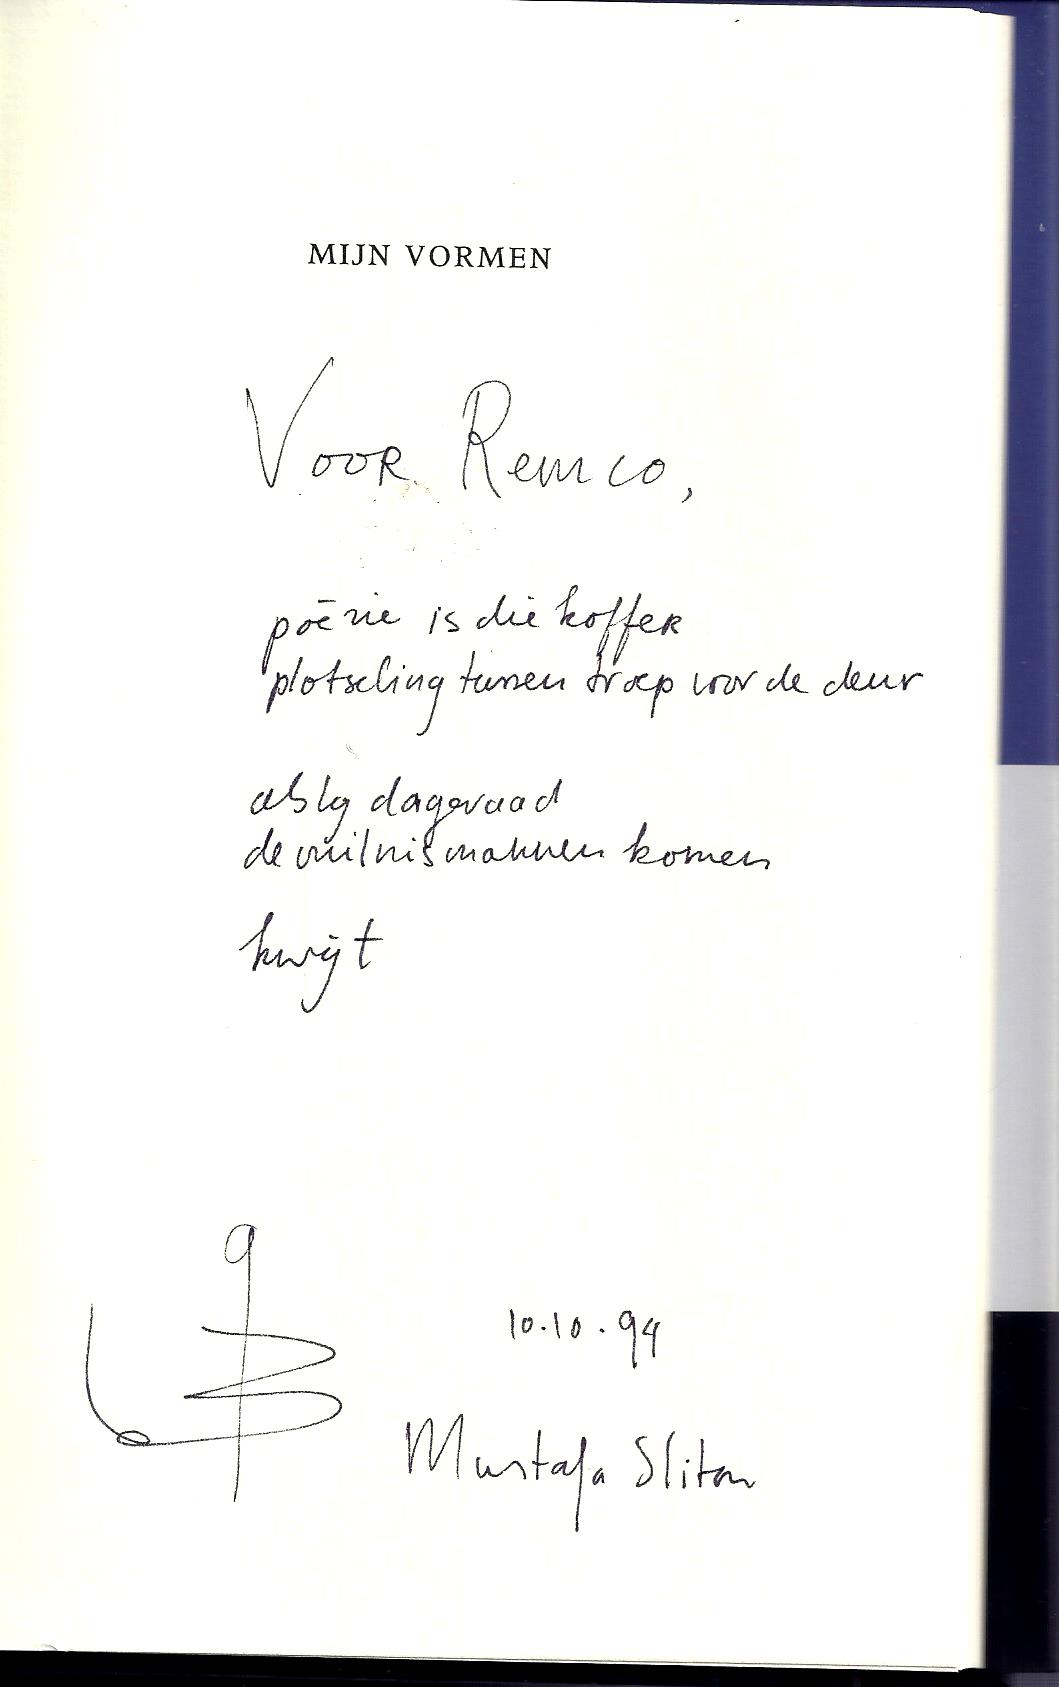 MIJN VORMEN
Voor Remco,
poëzie is die koffer
plotseling tussen troep voor de deur
als bij dageraad
de vuilnismannen komen
kwijt
10.10.94
Mustafa Stitou